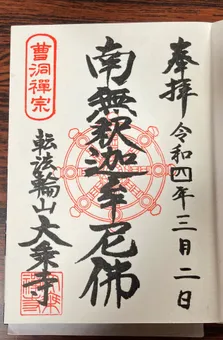 奉拝
令和四年三月二日
南無釈迦牟尼佛
曹洞禅宗
転法輪山大乗寺